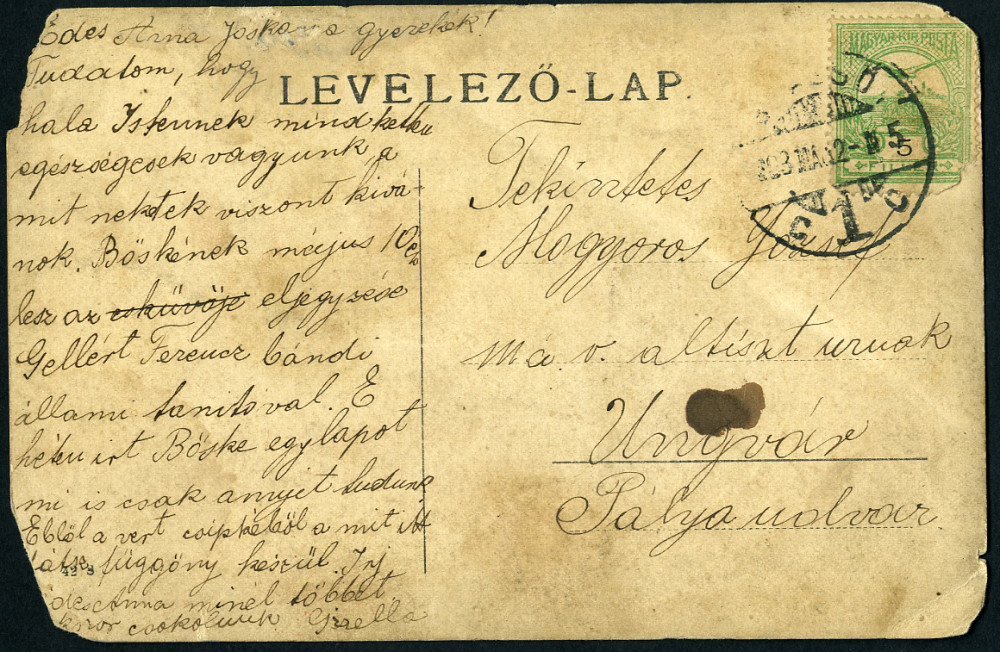 Édes Anna Jóska s a gyerekek!
Tudatom, hogy
hala Istennek mind ketten
egészségesek vagyunk, a
mit nektek viszont kivá-
nok. Böskének május 10én
lesz az esküvője eljegyzése
Gellért Ferencz bándi
állami tanitoval. E
héten irt Böske egy lapot
mi is csak annyit tudunk
Ebből a vert csipkéből a mit itt
látsz függöny készül. Irj
édes Anna minél többet
csokolunk Gizella
42 8
LEVELEZŐ-LAP.
Tekintetes
Mogyoros József
má. v. altiszt urnak
Ungvár
Pályaudvar.
MAGYAR KIR. POSTA
5